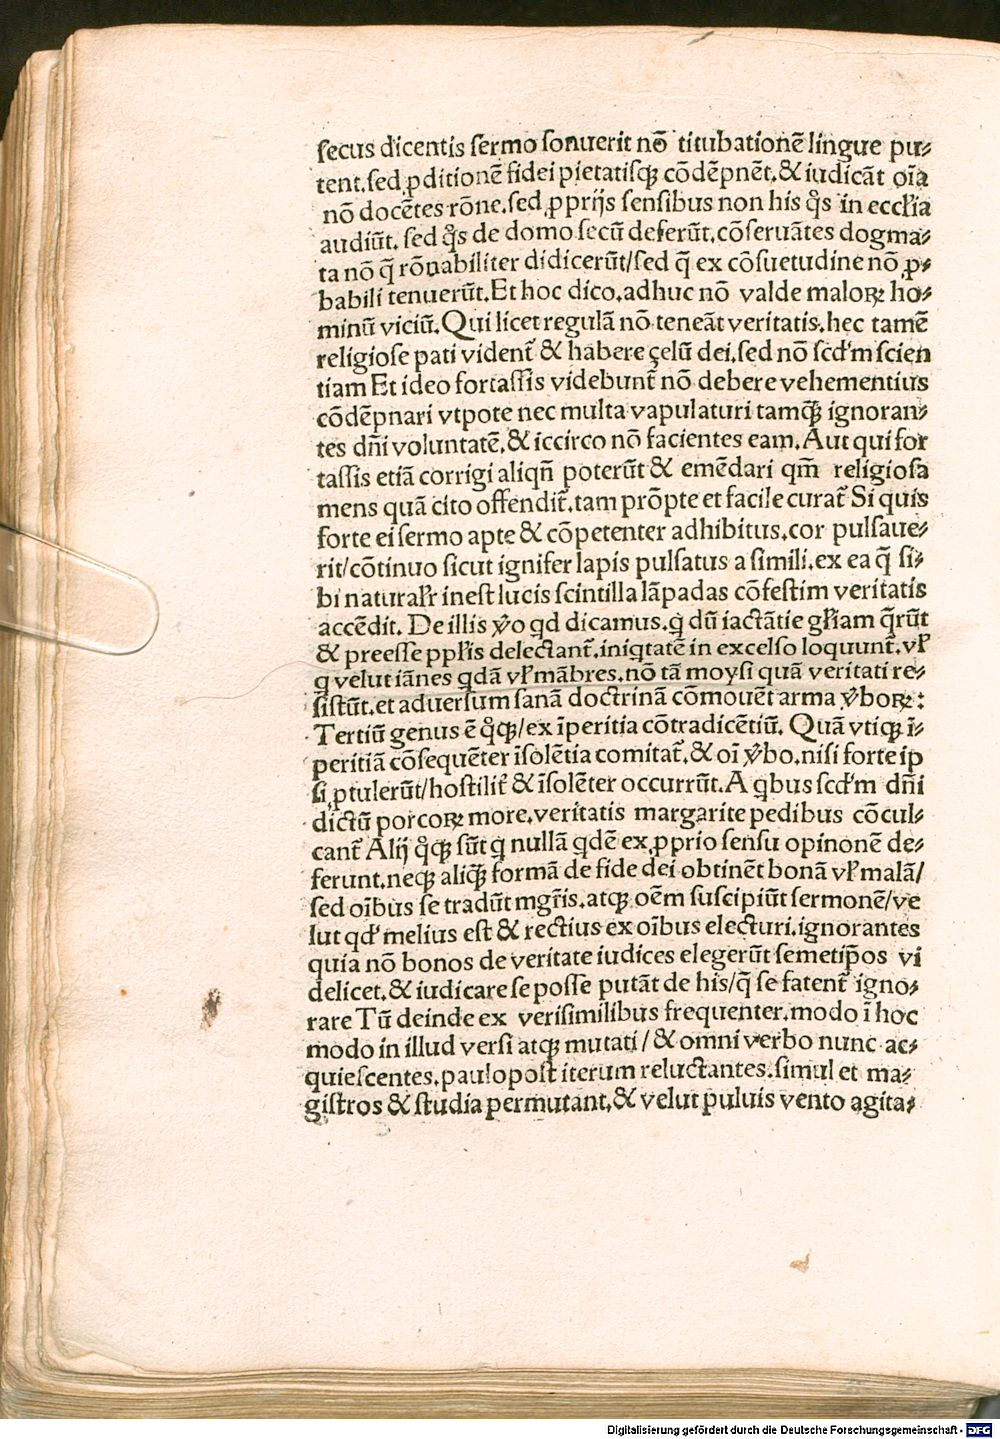 secus dicentis sermo sonuerit nō titubationē lingue pu⸗
tent. sed ꝓditionē fidei pietatisqꝫ cōdēpnēt. & iudicāt oīa
nō docētes rōne. sed ꝓprijs sensibus non his q̄s in eccl'ia
audiūt. sed q̊s de domo secū deferūt. cōseruātes dogma⸗
ta nō q̄ rōnabiliter didicerūt/sed q̄ ex cōsuetudine nō ꝓ⸗
babili tenuerūt. Et hoc dico. adhuc nō valde maloꝝ ho⸗
minū viciū. Qui licet regulā nō teneāt veritatis. hec tamē
religiose pati vident᷑ & habere çelū dei. sed nō scd'm scien
tiam Et ideo fortassis videbunt᷑ nō debere vehementius
cōdēpnari vtpote nec multa vapulaturi tamqꝫ ignoran⸗
tes dn̄i voluntatē. & iccirco nō facientes eam. Aut qui for
tassis etiā corrigi aliqn̄ poterūt & emēdari qm̄ religiosa
mens quā cito offendit᷑. tam prōpte et facile curat᷑ Si quis
forte ei sermo apte & cōpetenter adhibitus. cor pulsaue⸗
rit/cōtinuo sicut ignifer lapis pulsatus a simili. ex ea q̄ si⸗
bi natural'r inest lucis scintilla lāpadas cōfestim veritatis
accēdit. De illis v̊o qd dicamus. q̇ dū iactātie gl'iam q̄rūt
& preesse ppl'is delectant᷑. iniqtatē in excelso loquunt᷑. vl'
q velut iānes qdā vl' mābres. nō tā moysi quā veritati re⸗
sistūt. et aduersum sanā doctrinā cōmouēt arma v̊boꝝ:
Tertiū genus ē q̊qꝫ/ex īperitia cōtradicētiū. Quā vtiqꝫ ī⸗
peritiā cōsequēter īsolētia comitat᷑. & oī v̊bo. nisi forte ip
si ꝓtulerūt/hostilit᷑ & īsolēter occurrūt. A qbus scd'm dn̄i
dictū porcoꝝ more. veritatis margarite pedibus cōcul⸗
cant᷑ Alij q̊qꝫ sūt q nullā qdē ex ꝓprio sensu opinonē de⸗
ferunt. neqꝫ aliqꝫ formā de fide dei obtinēt bonā vl' malā/
sed oībus se tradūt mgr̄is. atqꝫ oēm suscipiūt sermonē/ve
lut qd' melius est & rectius ex oībus electuri. ignorantes
quia nō bonos de veritate iudices elegerūt semetip̄os vi
delicet. & iudicare se posse putāt de his/q̄ se fatent᷑ igno⸗
rare Tū deinde ex verisimilibus frequenter. modo ī hoc
modo in illud versi atqꝫ mutati/& omni verbo nunc ac⸗
quiescentes. paulopost iterum reluctantes. simul et ma⸗
gistros & studia permutant. & velut puluis vento agita⸗
Digitalisierung gefördert durch die Deutsche Forschungsgemeinschaft - DFG